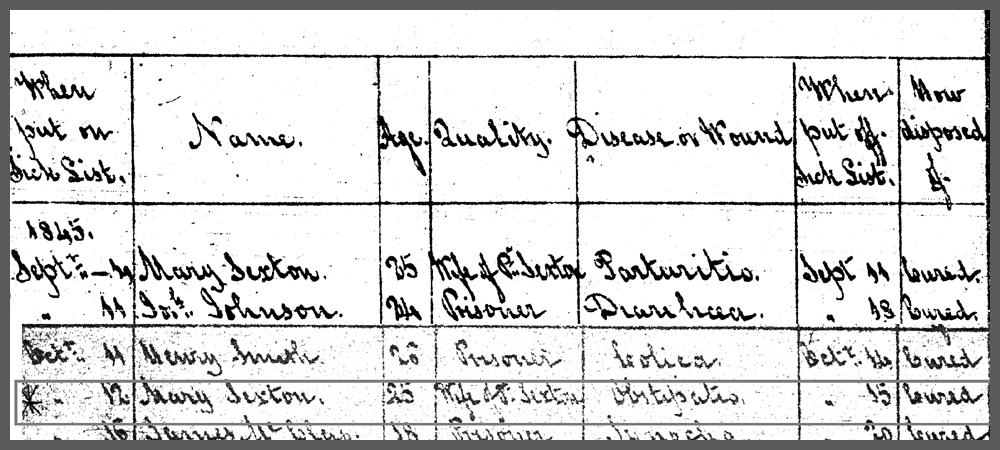 When put on Sick List. Name. Age. Quality. Disease or Wound When put off Sick List. How disposed of.
1845.
Septr. — 11 Mary Sexton. 25 Wife of Pt. Sexton Parturitio. Sept 11 Cured.
" 11 Jos. Johnson. 24 Prisoner Diarrhœa. " 18 Cured.
Octr. 11 Henry Smith. 26 Prisoner Colica. Octr. 14 Cured
* " 12 Mary Sexton. 25 Wife of Pt. Sexton Obstipatio. " 15 Cured
" 16 James Mc 18 Prisoner Synocha 20 Cured